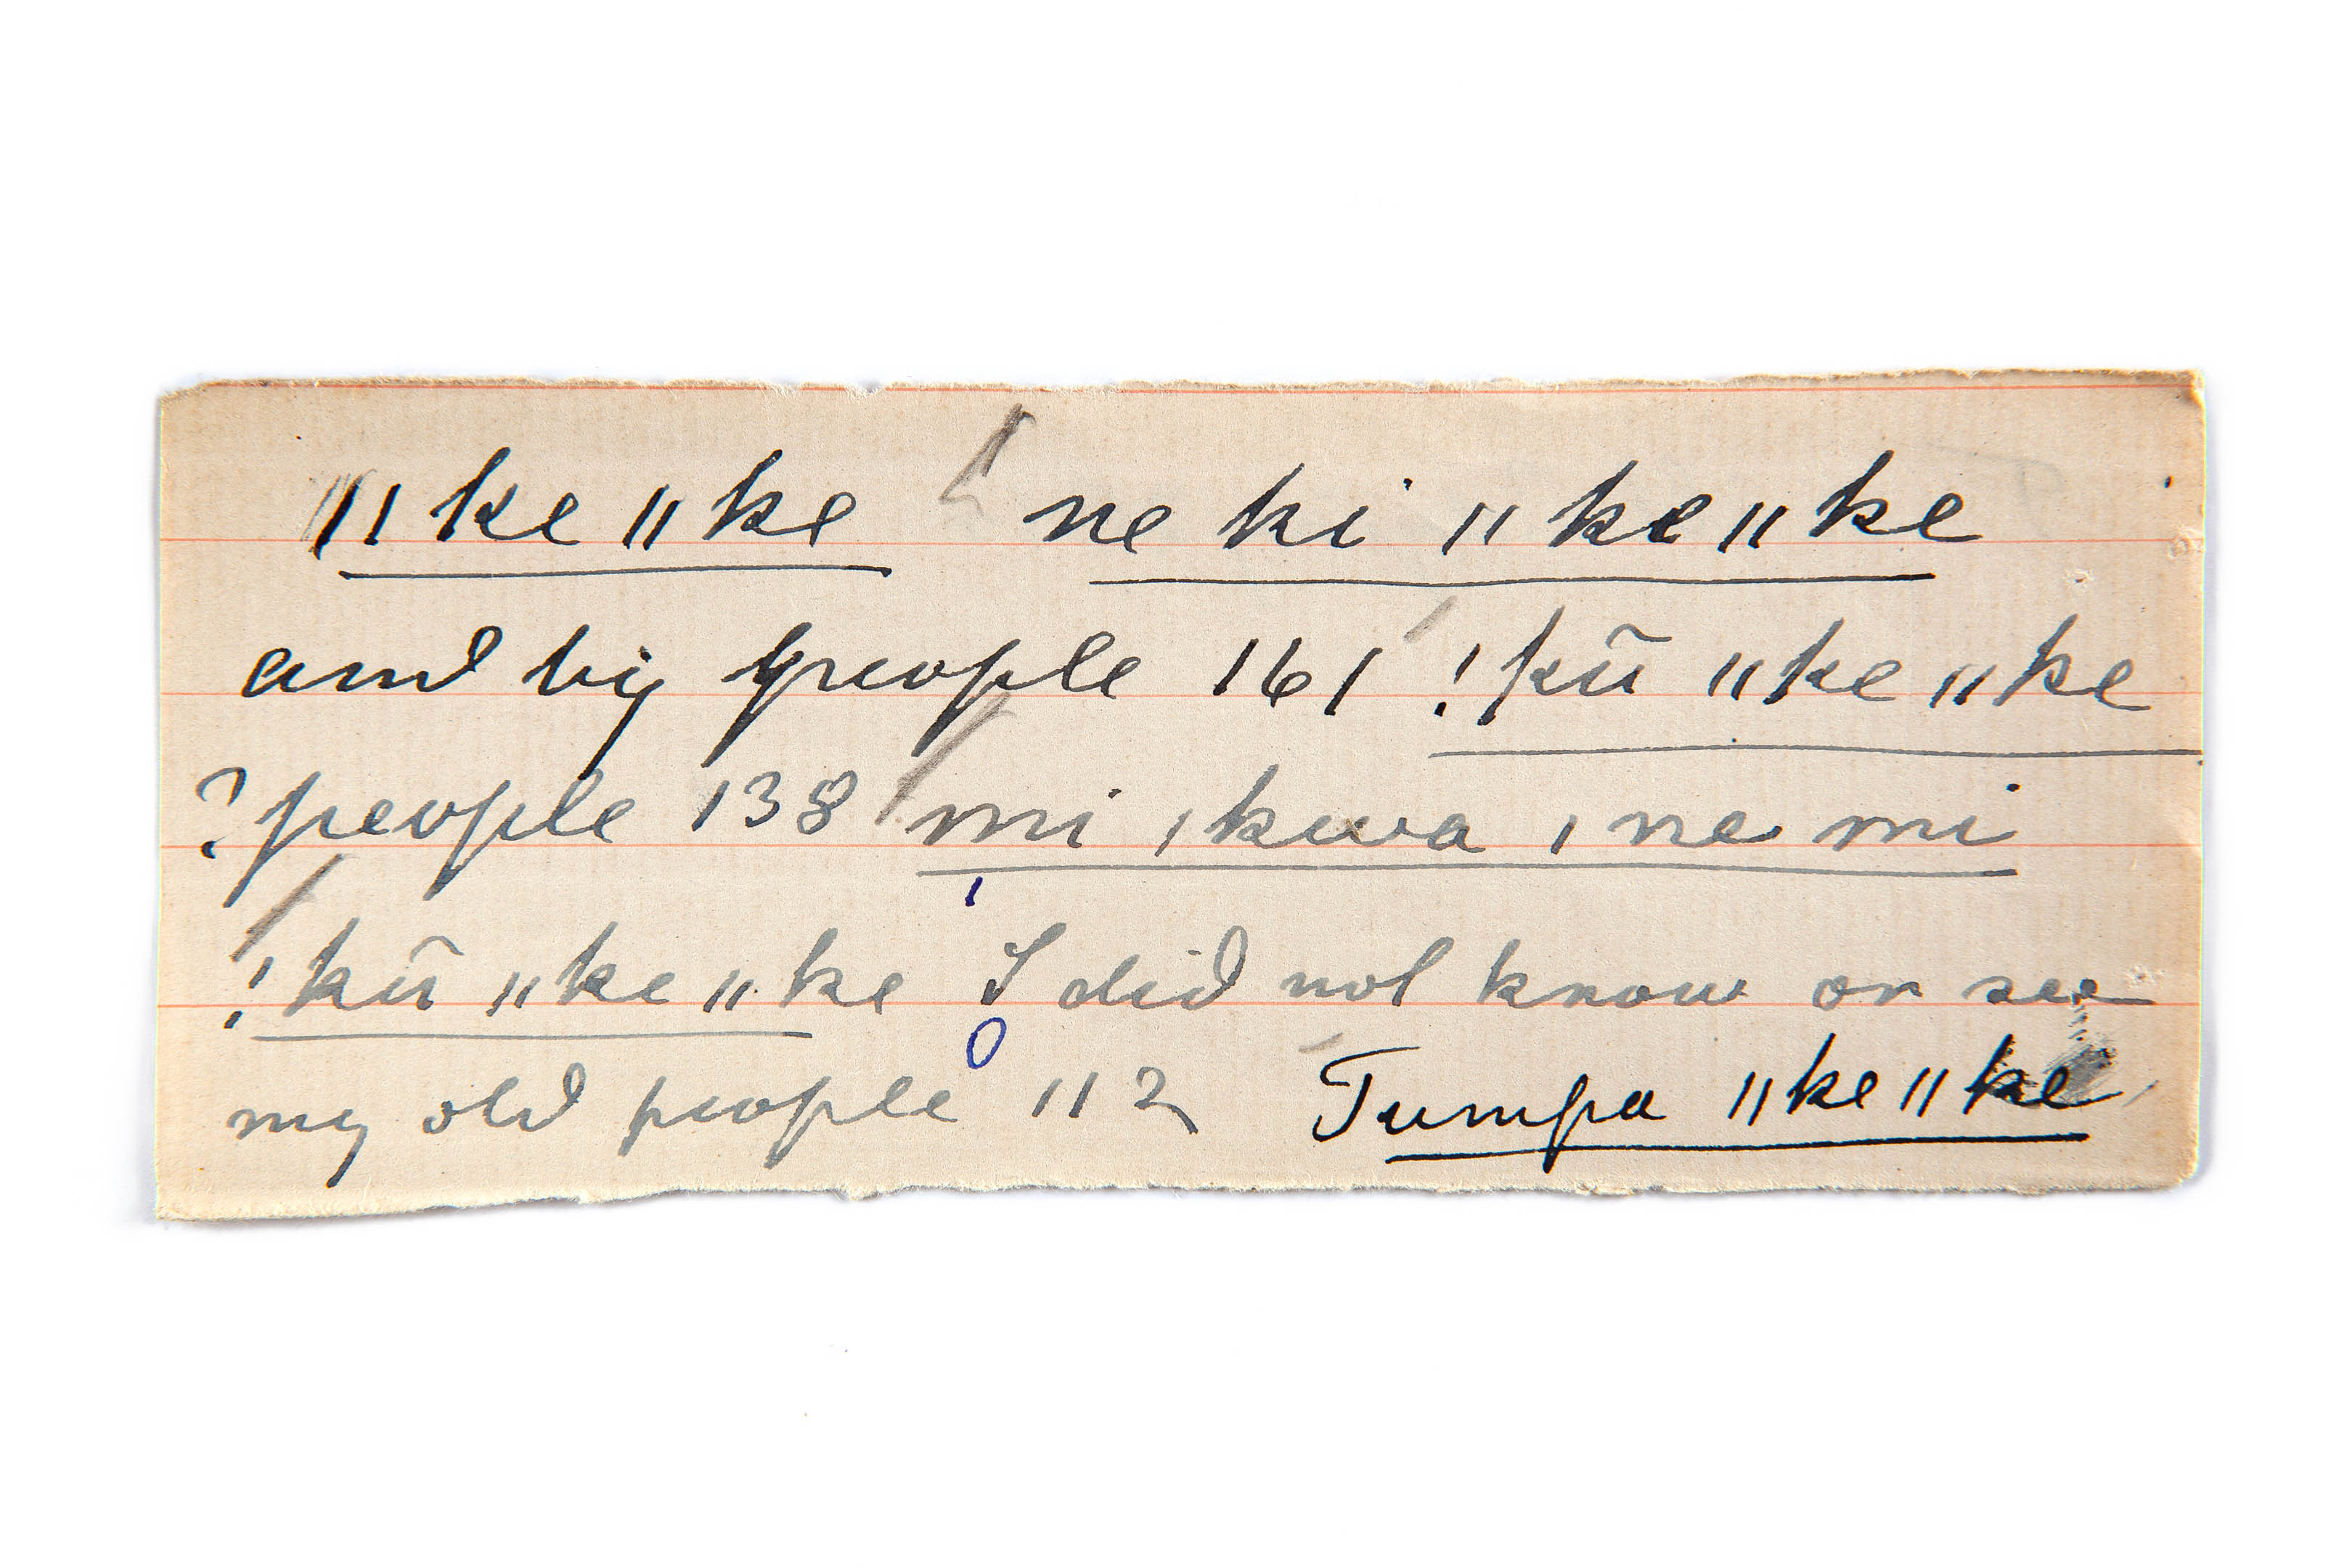 ǁkeǁke ne ki ǁkeǁke
and by people 161 !kũ ǁkeǁke
? people 138 mi ǀkwa ǀne mi
!kũ ǁkeǁke I did not know or see
my old people 112 Tumpa ǁkeǁke